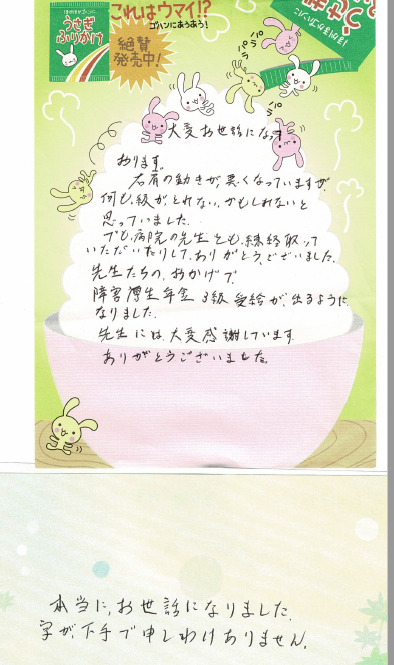 ほかほかゴハンに
うさぎ
ふりかけ
これはウマイ!?
ゴハンにあうあう!
絶賛
発売中!
パラ
パラ
パラ
パラ
ほかほかゴハンに
大変お世話になって
おります。
右肩の動きが、悪くなっていますが、
何も、級がとれない、かもしれないと
思っていました。
でも、病院の先生とも、連絡取って
いただいたりして、ありがとう、ございました。
先生たちの、おかげで、
障害厚生年金 3級 受給が、出るように
なりました。
先生には、大変感謝しています。
ありがとうございました。
本当に、お世話になりました。
字が、下手で申しわけありません。